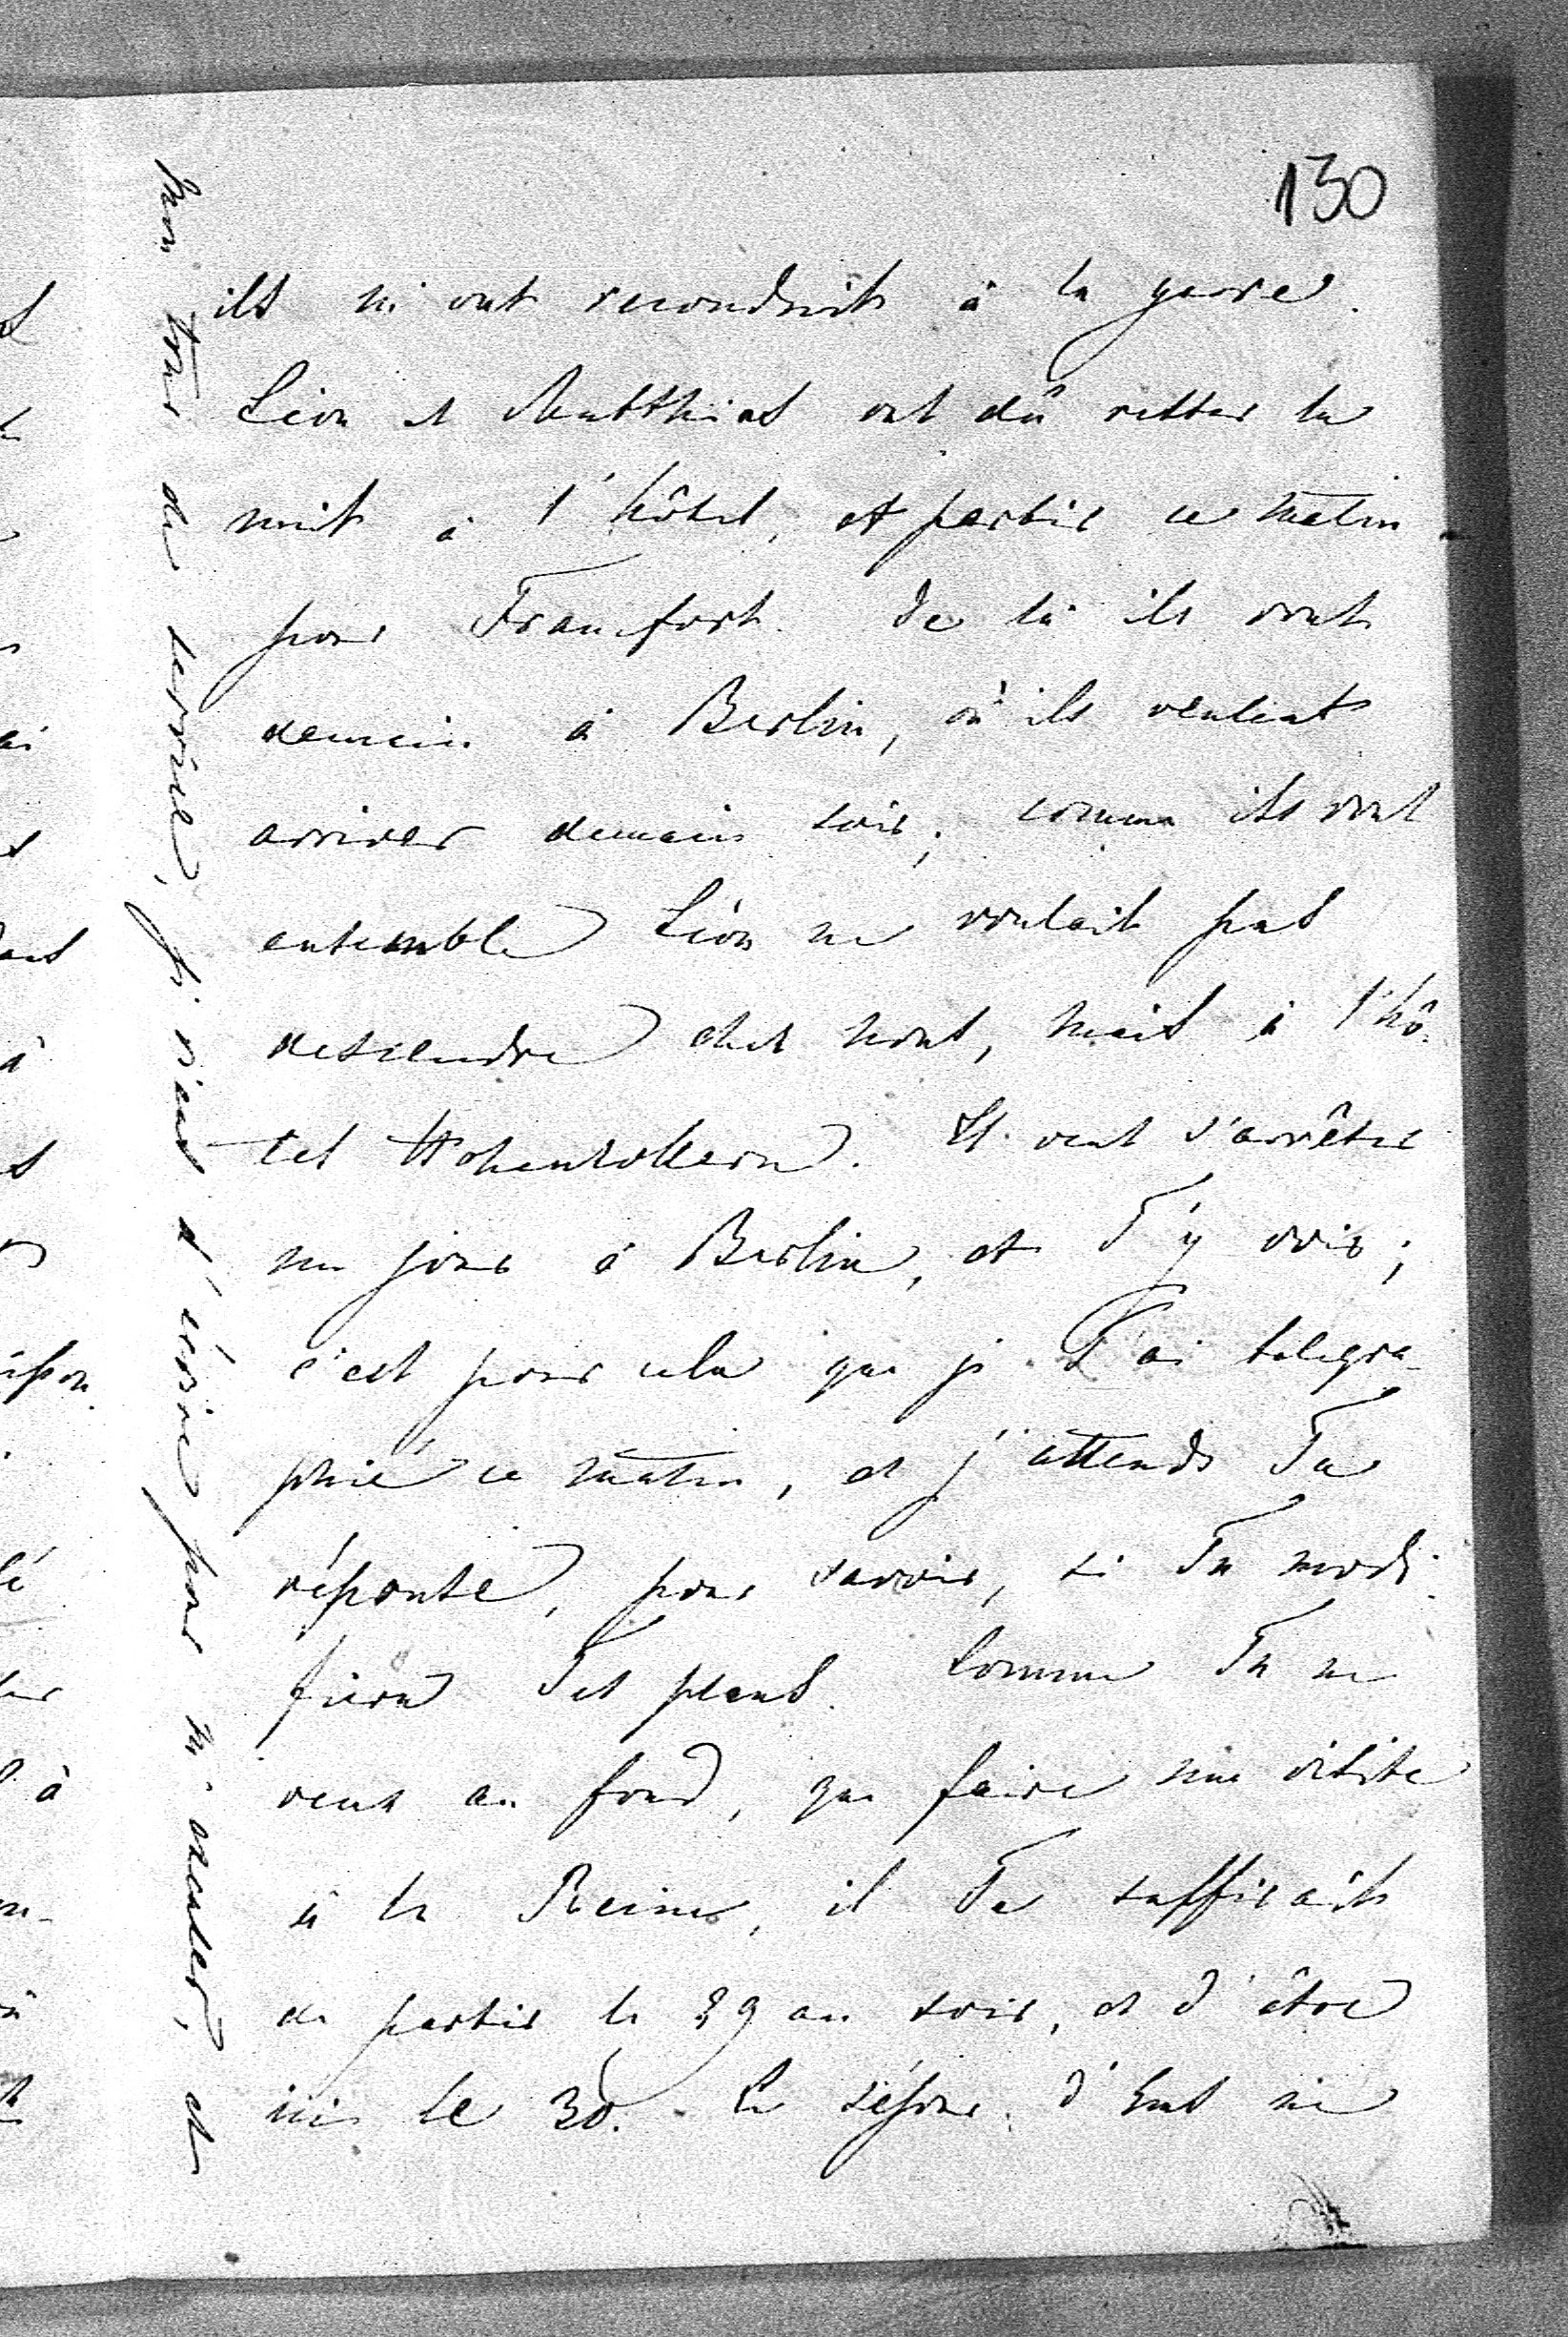 130
ils m'ont reconduit à la gare.
Léon et Matthias ont dû rester la
nuit à l'hôtel, et partir ce matin
pour Francfort. De là ils vont
demain à Berlin, où ils veulent
arriver demain soir; comme ils sont
ensemble Léon ne voulait pas
descendre chez nous, mais à l'hô-
tel Hohenzollern. Il veut s'arrêter
un jour à Berlin, et T'y voir;
c'est pour cela que je T'ai telegra-
phié ce matin, et j'attends Ta
réponse, pour savoir, si Tu modi-
fieras Tes plans. Comme Tu ne
veux au fond, que faire une visite
à la Reine, il Te suffirait
de partir le 29 au soir, et d'être
ici le 30. Le séjour d'Ems ne
tour de service, je viens d'écrire pour m'excuser, et